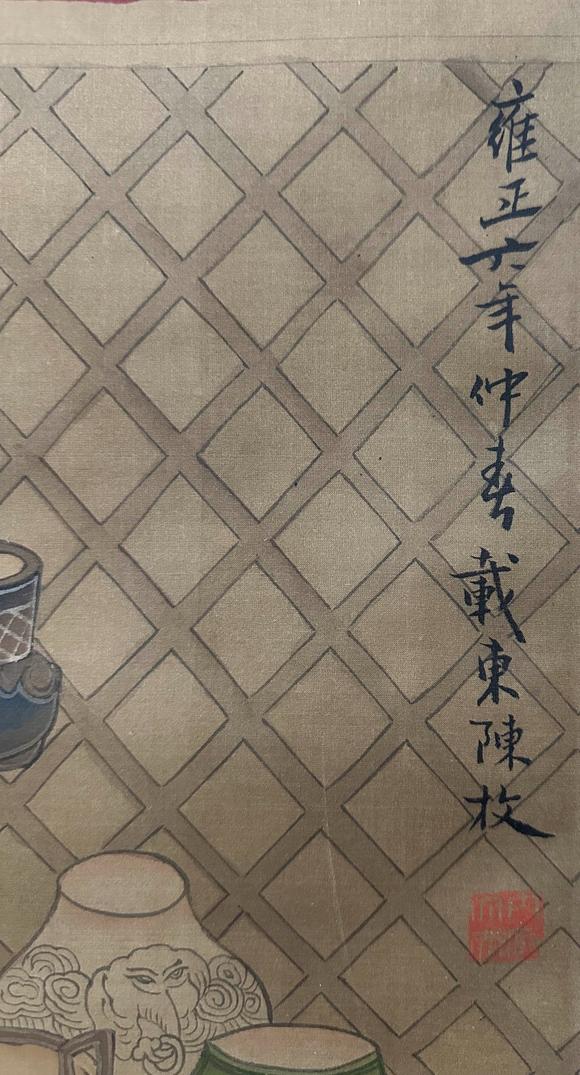 雍正六年仲春載東陳枚